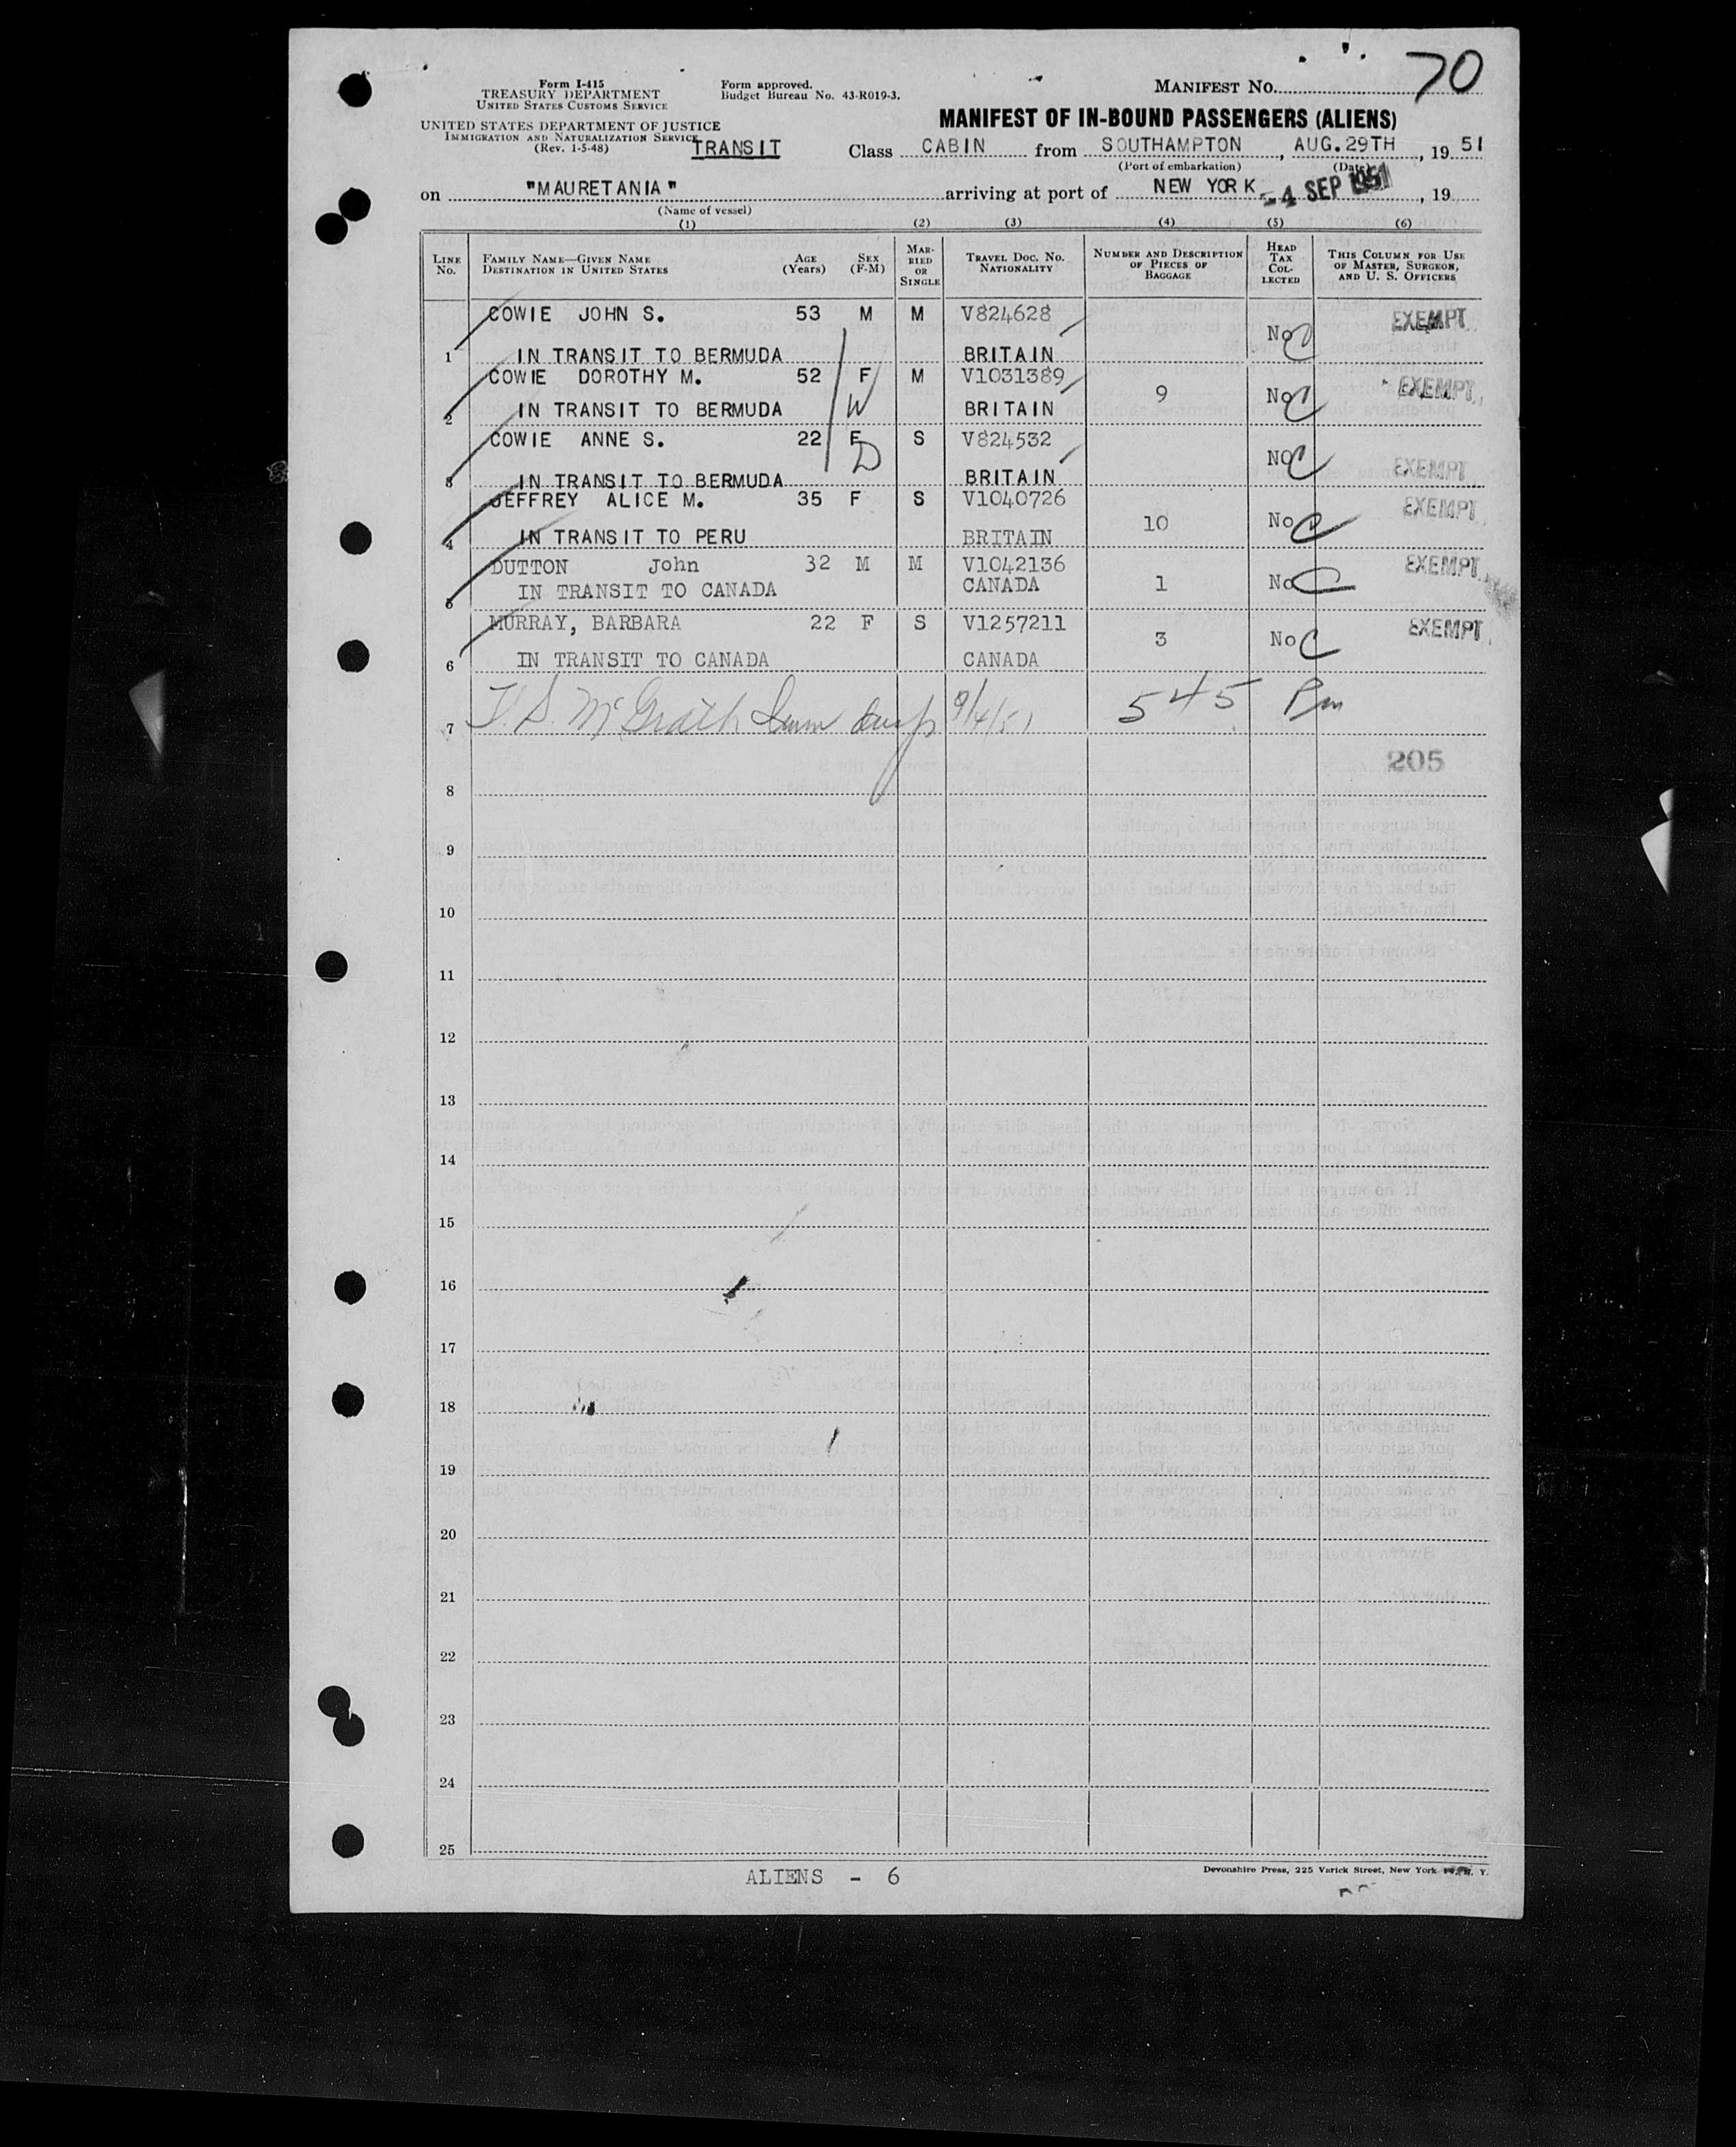 70
Form I-415
TREASURY DEPARTMENT
UNITED STATES CUSTOMS SERVICE
Form approved.
Budget Bureau No. 43-R019-3.
MANIFEST NO.
UNITED STATES DEPARTMENT OF JUSTICE
IMMIGRATION AND NATURALIZATION SERVICE
(Rev. 1-5-48)
TRANSIT
MANIFEST OF IN-BOUND PASSENGERS (ALIENS)
Class CABIN from SOUTHAMPTON, AUG.29TH, 19 51
(Port of embarkation) (Date)
on "MAURETANIA" arriving at port of NEW YORK -4 SEP 1951, 19
(Name of vessel)
(1) (2) (3) (4) (5) (6)
LINE NO. FAMILY NAME—GIVEN NAME DESTINATION IN UNITED STATES AGE (Years) SEX (F-M) MARRIED OR SINGLE TRAVEL DOC. NO. NATIONALITY NUMBER AND DESCRIPTION OF PIECES OF BAGGAGE HEAD TAX COLLECTED THIS COLUMN FOR USE OF MASTER, SURGEON, AND U. S. OFFICERS
COWIE JOHN S. 53 M M V824628 No C EXEMPT
1 IN TRANSIT TO BERMUDA BRITAIN
COWIE DOROTHY M. 52 F M V1031389 9 No C EXEMPT
2 IN TRANSIT TO BERMUDA W BRITAIN
COWIE ANNE S. 22 F S V824532 NO C EXEMPT
3 IN TRANSIT TO BERMUDA D BRITAIN
JEFFREY ALICE M. 35 F S V1040726 10 No C EXEMPT
4 IN TRANSIT TO PERU BRITAIN
DUTTON John 32 M M V1042136 EXEMPT
5 IN TRANSIT TO CANADA CANADA 1 No C
MURRAY, BARBARA 22 F S V1257211 3 No C EXEMPT
6 IN TRANSIT TO CANADA CANADA
7 McGrath 9/4/51 545 Pm
205
8
9
10
11
12
13
14
15
16
17
18
19
20
21
22
23
24
25
ALIENS - 6
Devonshire Press, 225 Varick Street, New York